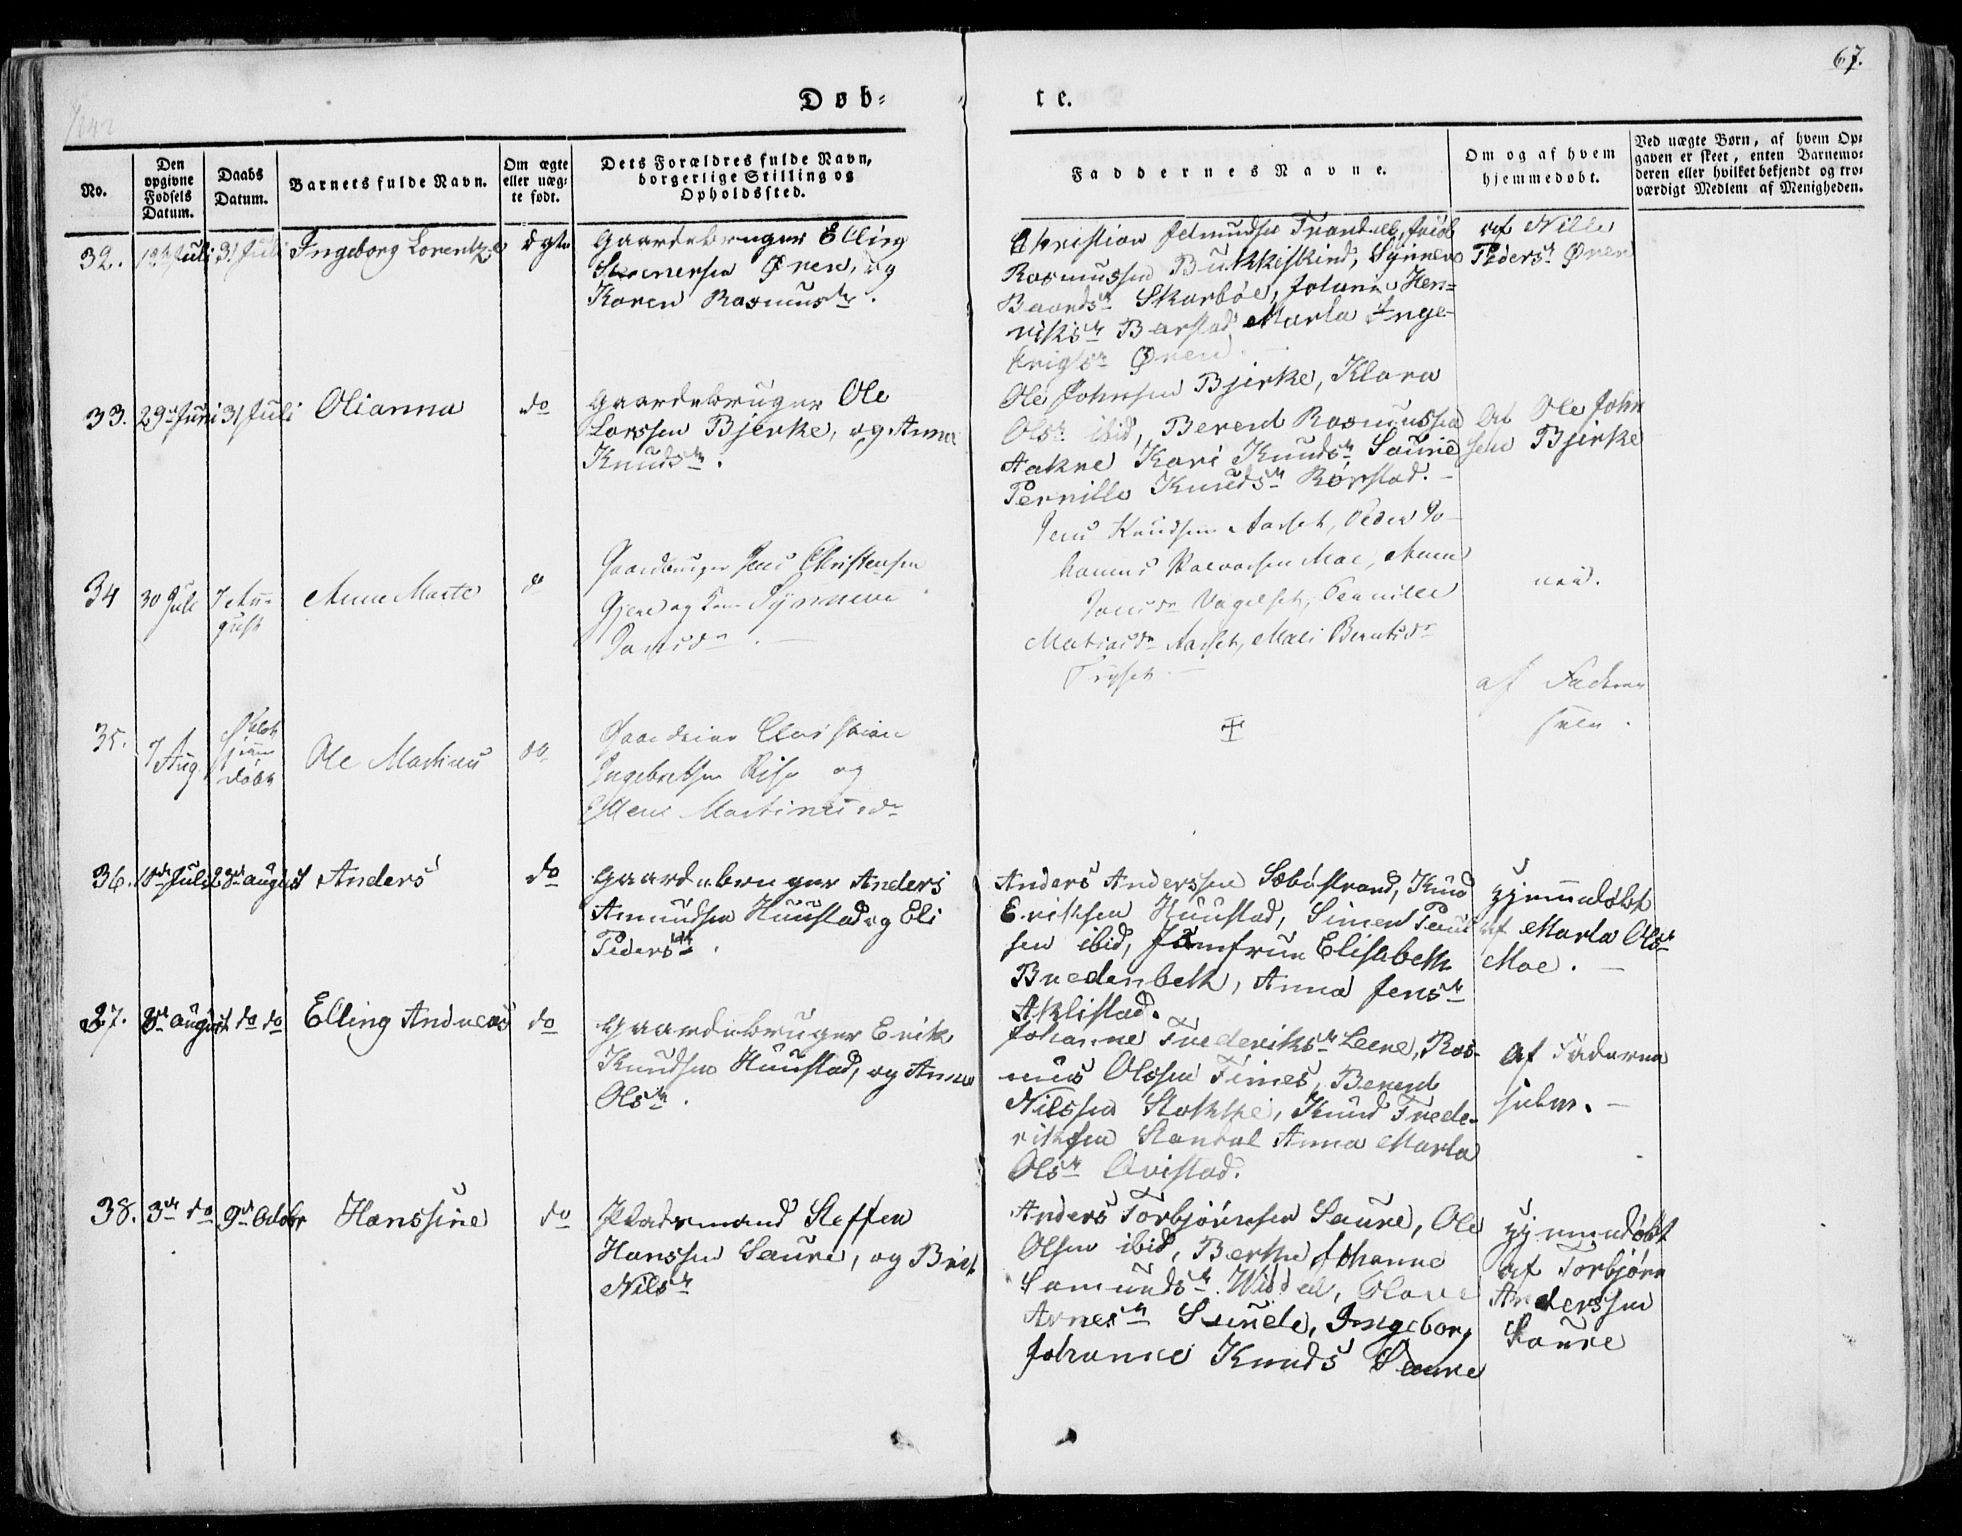 67.
1842
Døb=
te.
No.
Den opgivne Fødsels Datum.
Daabs Datum.
Barnets fulde Navn.
Om ægte eller uægte født.
Dets Forældres fulde Navn, borgerlige Stilling og Opholdssted.
Faddernes Navne.
Om og af hvem hjemmedøbt.
Ved uægte Børn, af hvem Opgaven er skeet, enten Barnemoderen eller hvilket bekjendt og troværdigt Medlem af Menigheden.
32.
Juli
31 Juli
Ingeborg
ægte
Gaardebruger Elling
Øren, og
Karen Rasmusdr.
Christian
Rasmussen Synneve
Baardsdr Skarbøe, Johanne Hen=
riksdr Barstad Marta Inge=
Øren
af Nille
Pedersdr Øren
33.
29de Juni
31 Juli
Olianna
do
Gaardebruger Ole
Larssen Bjerke, og Anna
Knudsdr.
Ole Johnsen Bjerke, Klara
Olsdr ibid, Berend Rasmussen
Aakre Kari Knudsdr Saure
Pernille Knudsdr Rørstad. -
af Ole John
sen Bjerke
34
30 Juli
7 Au=
gust
Anne Marte
do
Gaardbruger Jens Christensen
og Synneve
Jens Knudsen Aarset, Peder Jo
hannes Moe, Anne
Pernille
Aarset, Mali Berntsdr
nei.
35.
7 Aug
hjem
døbt
Ole Martinus
do
Christian
Ingebretsen Rise og
Ellen Martinusdr
af Faderen
selv.
36.
Juli
28de august
Anders
do
Gaardebruger Anders
Amundsen Huustad og Eli
Pedersdr.
Anders Anderssen Sæbøstrand, Knud
Eriksen Huustad, Simen
sen ibid, Jomfrue Elisabeth
Bredenbek, Anna Jensdr
Aklistad.
Hjemmedøbt
af Marta Olsdr
Moe. -
37.
3de august
do do
Elling Andreas
do
Gaardebruger Erik
Knudsen Huustad, og Anne
Olsdr.
Johanne Frederiksdr Leene, Ras-
mus Olssen Fines, Berend
Nilssen Knud Frede-
riksen Standal Anna Marta
Olsdr Qvistad.
af Faderen
selv. -
38.
3de do
9de Octobr
Hanssine
do
Pladsmand Steffen
Hanssen Saure, og Brit
Nilsdr
Anders Torbjørnsen Saure, Ole
Olsen ibid, Berthe Johanne
Samundsdr Widdal, Olave
Arnesdr Sunde, Ingeborg
Johanne Knuds Saure
Hjemmedøbt
af Torbjørn
Anderssen
Saure